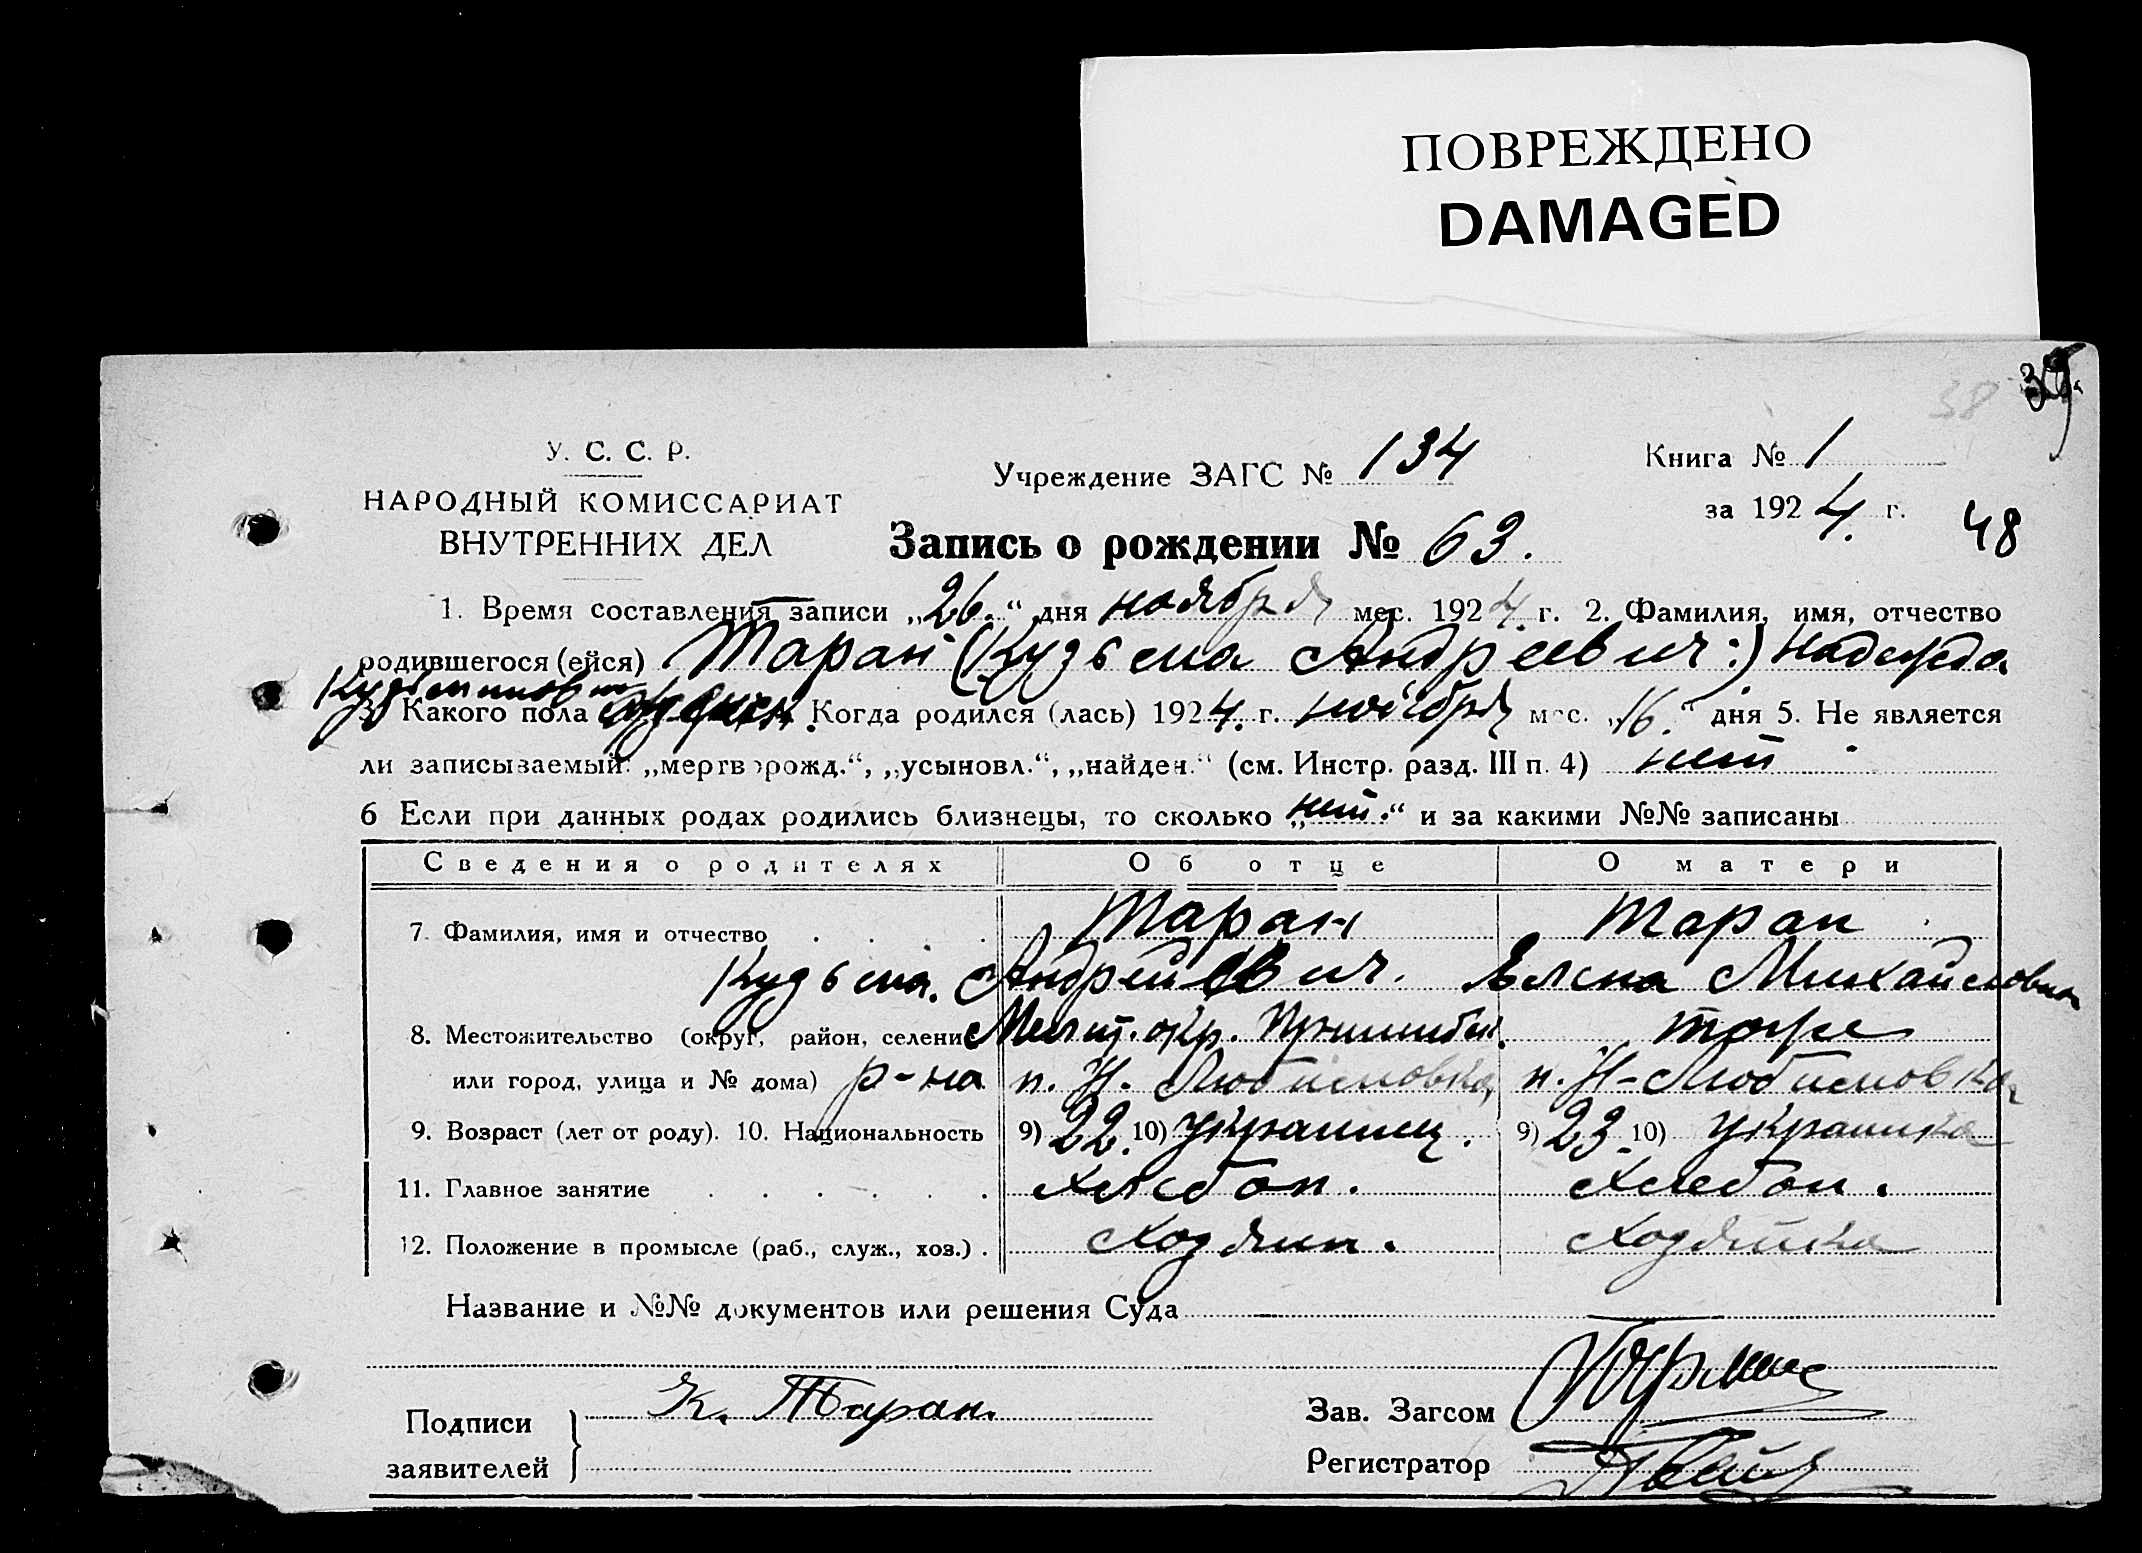 ПОВРЕЖДЕНО
DAMAGED
38 39
У. С. С. Р.
НАРОДНЫЙ КОМИССАРИАТ
ВНУТРЕННИХ ДЕЛ
Учреждение ЗАГС № 134
Книга № 1
за 1924 г.
48
Запись о рождении № 63.
1. Время составления записи „26." дня ноября мес. 1924. г. 2. Фамилия, имя, отчество
родившегося (ейся) Таран (Кузьма Андреевич:) Надежда
Кузьминовна
3. Какого пола Когда родился (лась) 1924. г. ноября мес. „16." дня 5. Не является
ли записываемый: „мертворожд.", „усыновл.", „найден." (см. Инстр. разд. III п. 4) нет
6 Если при данных родах родились близнецы, то сколько „нет." и за какими №№ записаны
Сведения о родителях Об отце О матери
7. Фамилия, имя и отчество Таран Таран
Кузьма. Андреевич. Елена Михайловна
8. Местожительство (округ, район, селение Мелит. окр. Пришибск. тоже
или город, улица и № дома) р-на п. Н. Любимовка, п. Н-Любимовка
9. Возраст (лет от роду). 10. Национальность 9) 22. 10) украинец. 9) 23. 10) украинка
11. Главное занятие Хлебоп. Хлебоп.
12. Положение в промысле (раб., служ., хоз.) Хозяин. Хозяйка
Название и №№ документов или решения Суда —
Подписи заявителей К. Таран.
Зав. Загсом
Регистратор